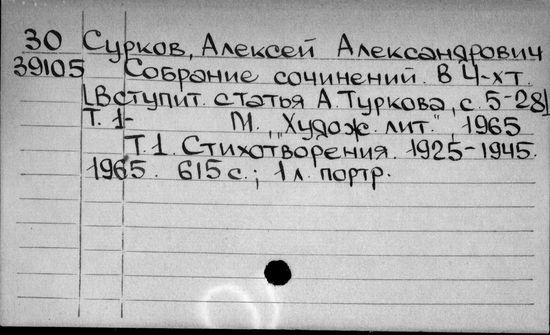 30 Сурков, Алексей Александрович
39105 Собрание сочинений. В 4-х т.
[Вступит. статья А. Туркова, с. 5-28]
Т. 1- М., "Худож. лит.", 1965
Т. 1. Стихотворения. 1925-1945.
1965. 615 с.; 1 л. портр.